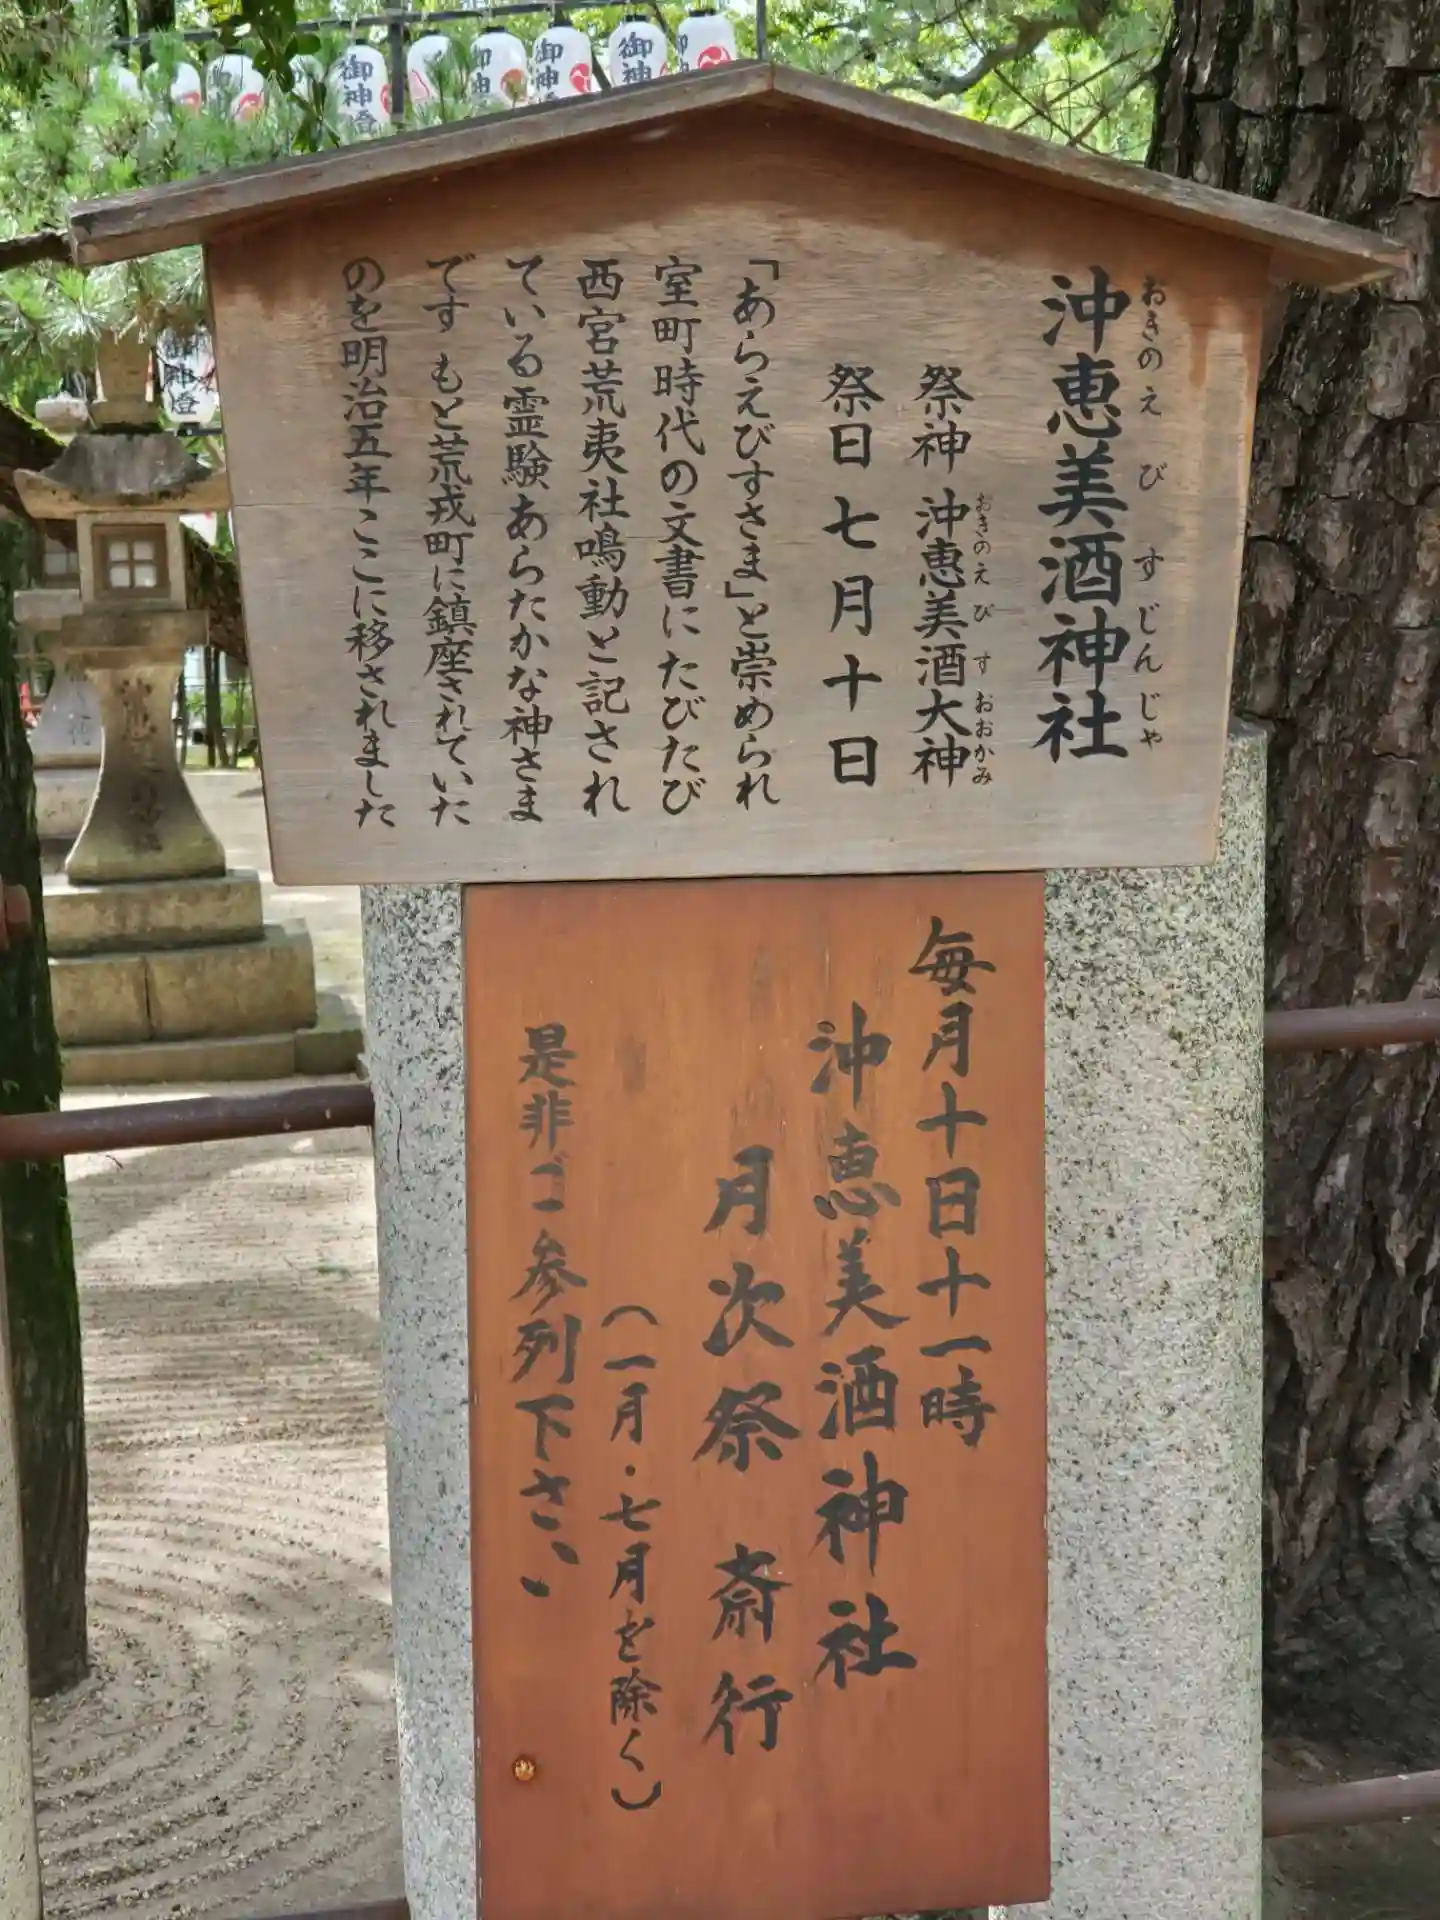 沖恵美酒神社
おきのえびすじんじゃ
祭神 沖恵美酒大神
おきのえびすおおかみ
祭日 七月十日
「あらえびすさま」と崇められ
室町時代の文書にたびたび
西宮荒夷社鳴動と記され
ている霊験あらたかな神さま
です もと荒戎町に鎮座されていた
のを明治五年ここに移されました
毎月十日十一時
沖恵美酒神社
月次祭 斎行
(一月・七月を除く)
是非ご参列下さい
御神燈
御神
御神
御神
御神燈